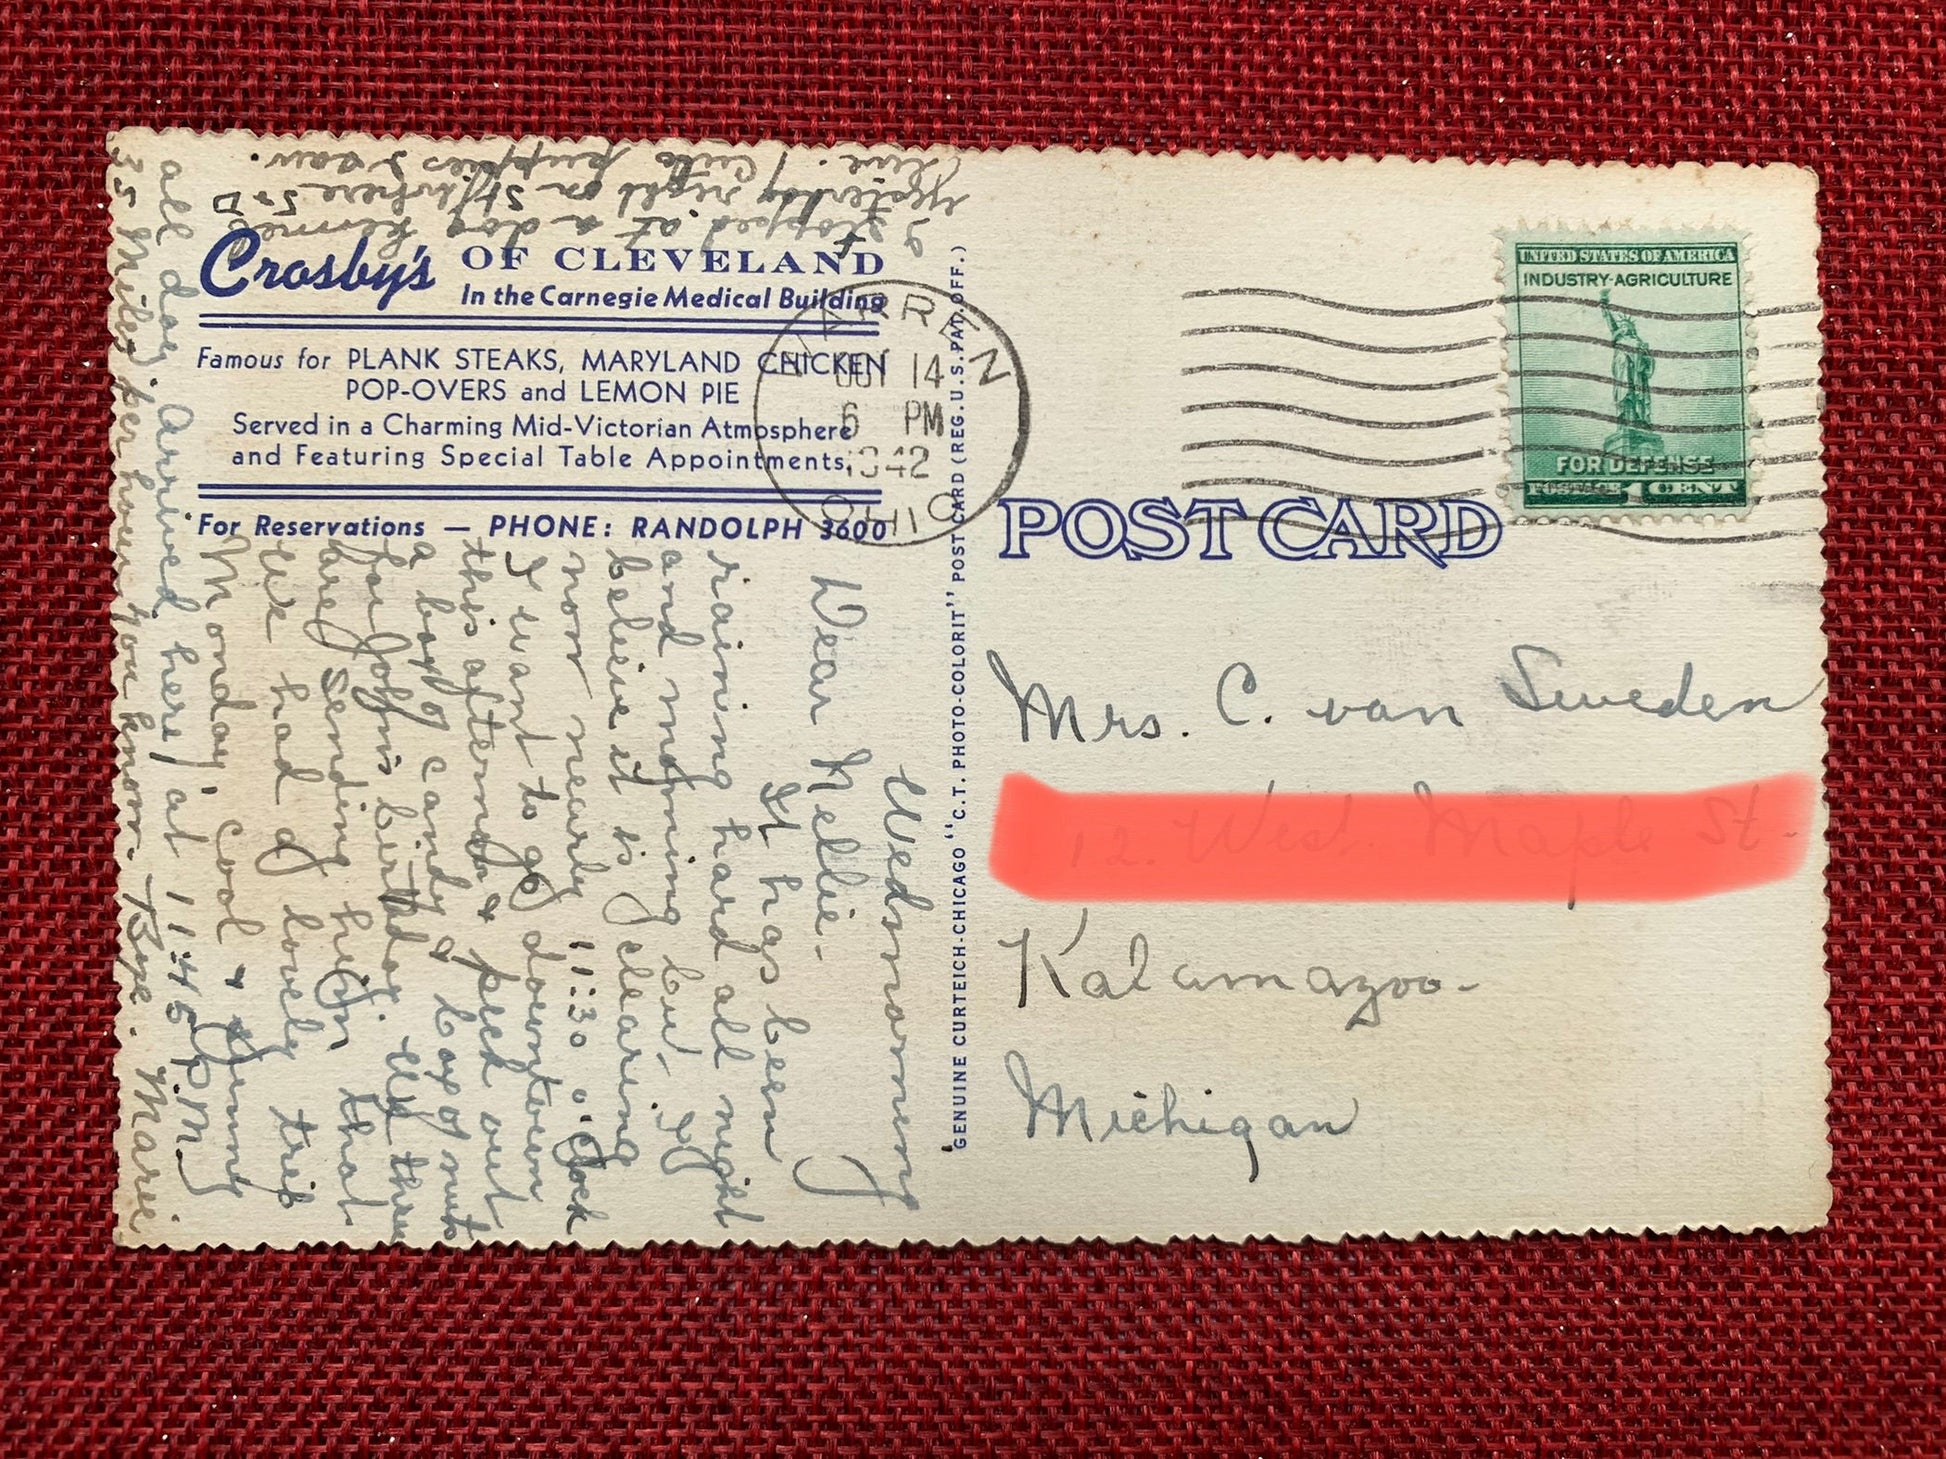 Crosby's OF CLEVELAND
In the Carnegie Medical Building
Famous for PLANK STEAKS, MARYLAND CHICKEN
POP-OVERS and LEMON PIE
Served in a Charming Mid-Victorian Atmosphere
and Featuring Special Table Appointments.
For Reservations — PHONE: RANDOLPH 3600
Wednesmorning
Dear Nellie-
It has been
raining hard all night
and morning but
believe it is clearing
now nearly 11:30 o'clock
I want to go downtown
this afternoon & pick out
a box of candy & box of nuts
for John's birthday. We three
are sending him that.
We had a lovely trip
Monday cool & sunny
all day. Arrived here at 11:45 P.M.
35 Miles per hour you know. Bye. Marie.
I stopped at a dog kennel
yesterday right on St/where S & D
live. Cute puppies I saw.
GENUINE CURTEICH-CHICAGO "C.T. PHOTO-COLORIT" POST CARD (REG. U.S. PAT. OFF.)
WARREN
OCT 14
6 PM
1942
OHIO
UNITED STATES OF AMERICA
INDUSTRY·AGRICULTURE
FOR DEFENSE
POSTAGE 1 CENT
POST CARD
Mrs. C. van Sweden
Kalamazoo-
Michigan